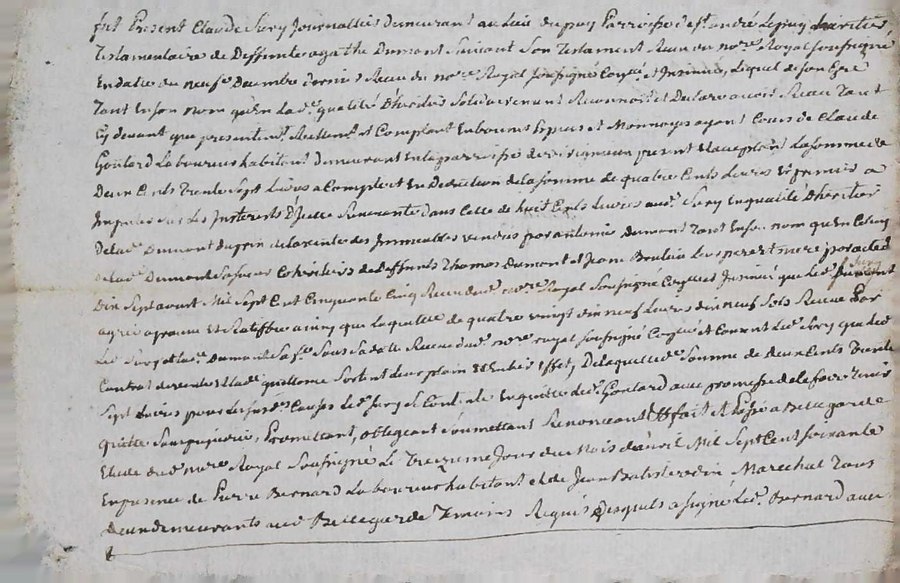 fut Present Claude Jury Journallier Demeurant au lieu du puy Parroisse de st. andré Lepuy heritier
Testamentaire de Deffunte agathe Dumont Suivant Son Testament Receu du nore. Royal soussigné
En datte du neufe. Decembre dernier Receu du nore. Royal soussigné Conttlé et Insinué, Lequel de son Gré
Tant En son nom qu'en lad.e qualité D'heritier Reconnoit et Declare avoir Receu Tant
Cy devant que presentemt. Reellemt. et Comptant En bonnes Especes et Monnoyes ayant Cours de Claude
Goulard Laboureur habitant demeurant En la parroisse de present et acceptant La somme de
Deux Cents Trente Sept Livres a Compte et En Deduction de la somme de quatre Cents Livres
Imputer sur Les Interests D'Icelle Revenante dans Celle de huit Cents Livres aud. Jury En qualité D'heritier
De lad. Dumont du prix de la vente des Immeubles vendus par antoine Dumont Tant En son nom qu'en Celuy
de lad. Dumont Sa soeur Coheritiers de deffunts Thomas Dumont et Jeanne Leurs pere et mere par acte du
Dix Sept avout Mil Sept Cent Cinquante Cinq Receu dud. nore. Royal Soussigné Conttlé et Insinué que Led. Jury
agrée aprouve et Ratiffie ainsy que la quittce. de quatre vingt dix neuf Livres dix neuf Sols Receue Par
Le. Jury et lad. Dumont Sa fe. Sous Sa datte Receue dud. nore. royal soussigné Conttlé et Consent Led. Jury que led.
Contrat de vente et lad. quittance Sortent Leur plain et Entier Effet, De laquelle d. Somme de deux Cents Trente
Sept Livres pour les susd. Causes Led. Jury Content En quitte led. Goulard avec promesse de le faire Tenir
quitte Promettant, obligeant Soumettant Renonceant Et fait et Passé a Bellegarde
Etude dud. nore. Royal Soussigné Le Treizieme Jour du Mois d'avril Mil Sept Cent Soixante
En presence de Pierre Bernard Laboureur habitant et de Jean Baptiste Marechal Tous
deux demeurants aud. Bellegarde Temoins Requis Desquels a signé Led. Bernard avec